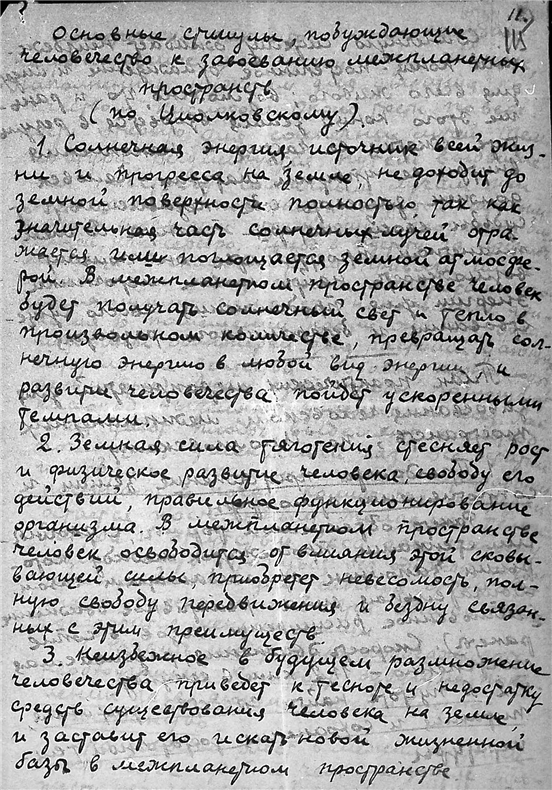 11.
III
Основные стимулы, побуждающие
человечество к завоеванию межпланетных
пространств
(по Циолковскому).
1. Солнечная энергия, источник всей жиз-
ни и прогресса на земле, не доходит до
земной поверхности полностью, так как
значительная часть солнечных лучей отра-
жается или поглощается земной атмосфе-
рой. В межпланетном пространстве человек
будет получать солнечный свет и тепло в
произвольном количестве, превращать сол-
нечную энергию в любой вид энергии и
развитие человечества пойдет ускоренными
темпами.
2. Земная сила тяготения стесняет рост
и физическое развитие человека, свободу его
действий, правильное функционирование
организма. В межпланетном пространстве
человек освободится от влияния этой сковы-
вающей силы, приобретет невесомость, пол-
ную свободу передвижения и бездну связан-
ных с этим преимуществ
3. Неизбежное в будущем размножение
человечества приведет к тесноте и недостатку
средств существования человека на земле,
и заставит его искать новой жизненной
базы в межпланетном пространстве